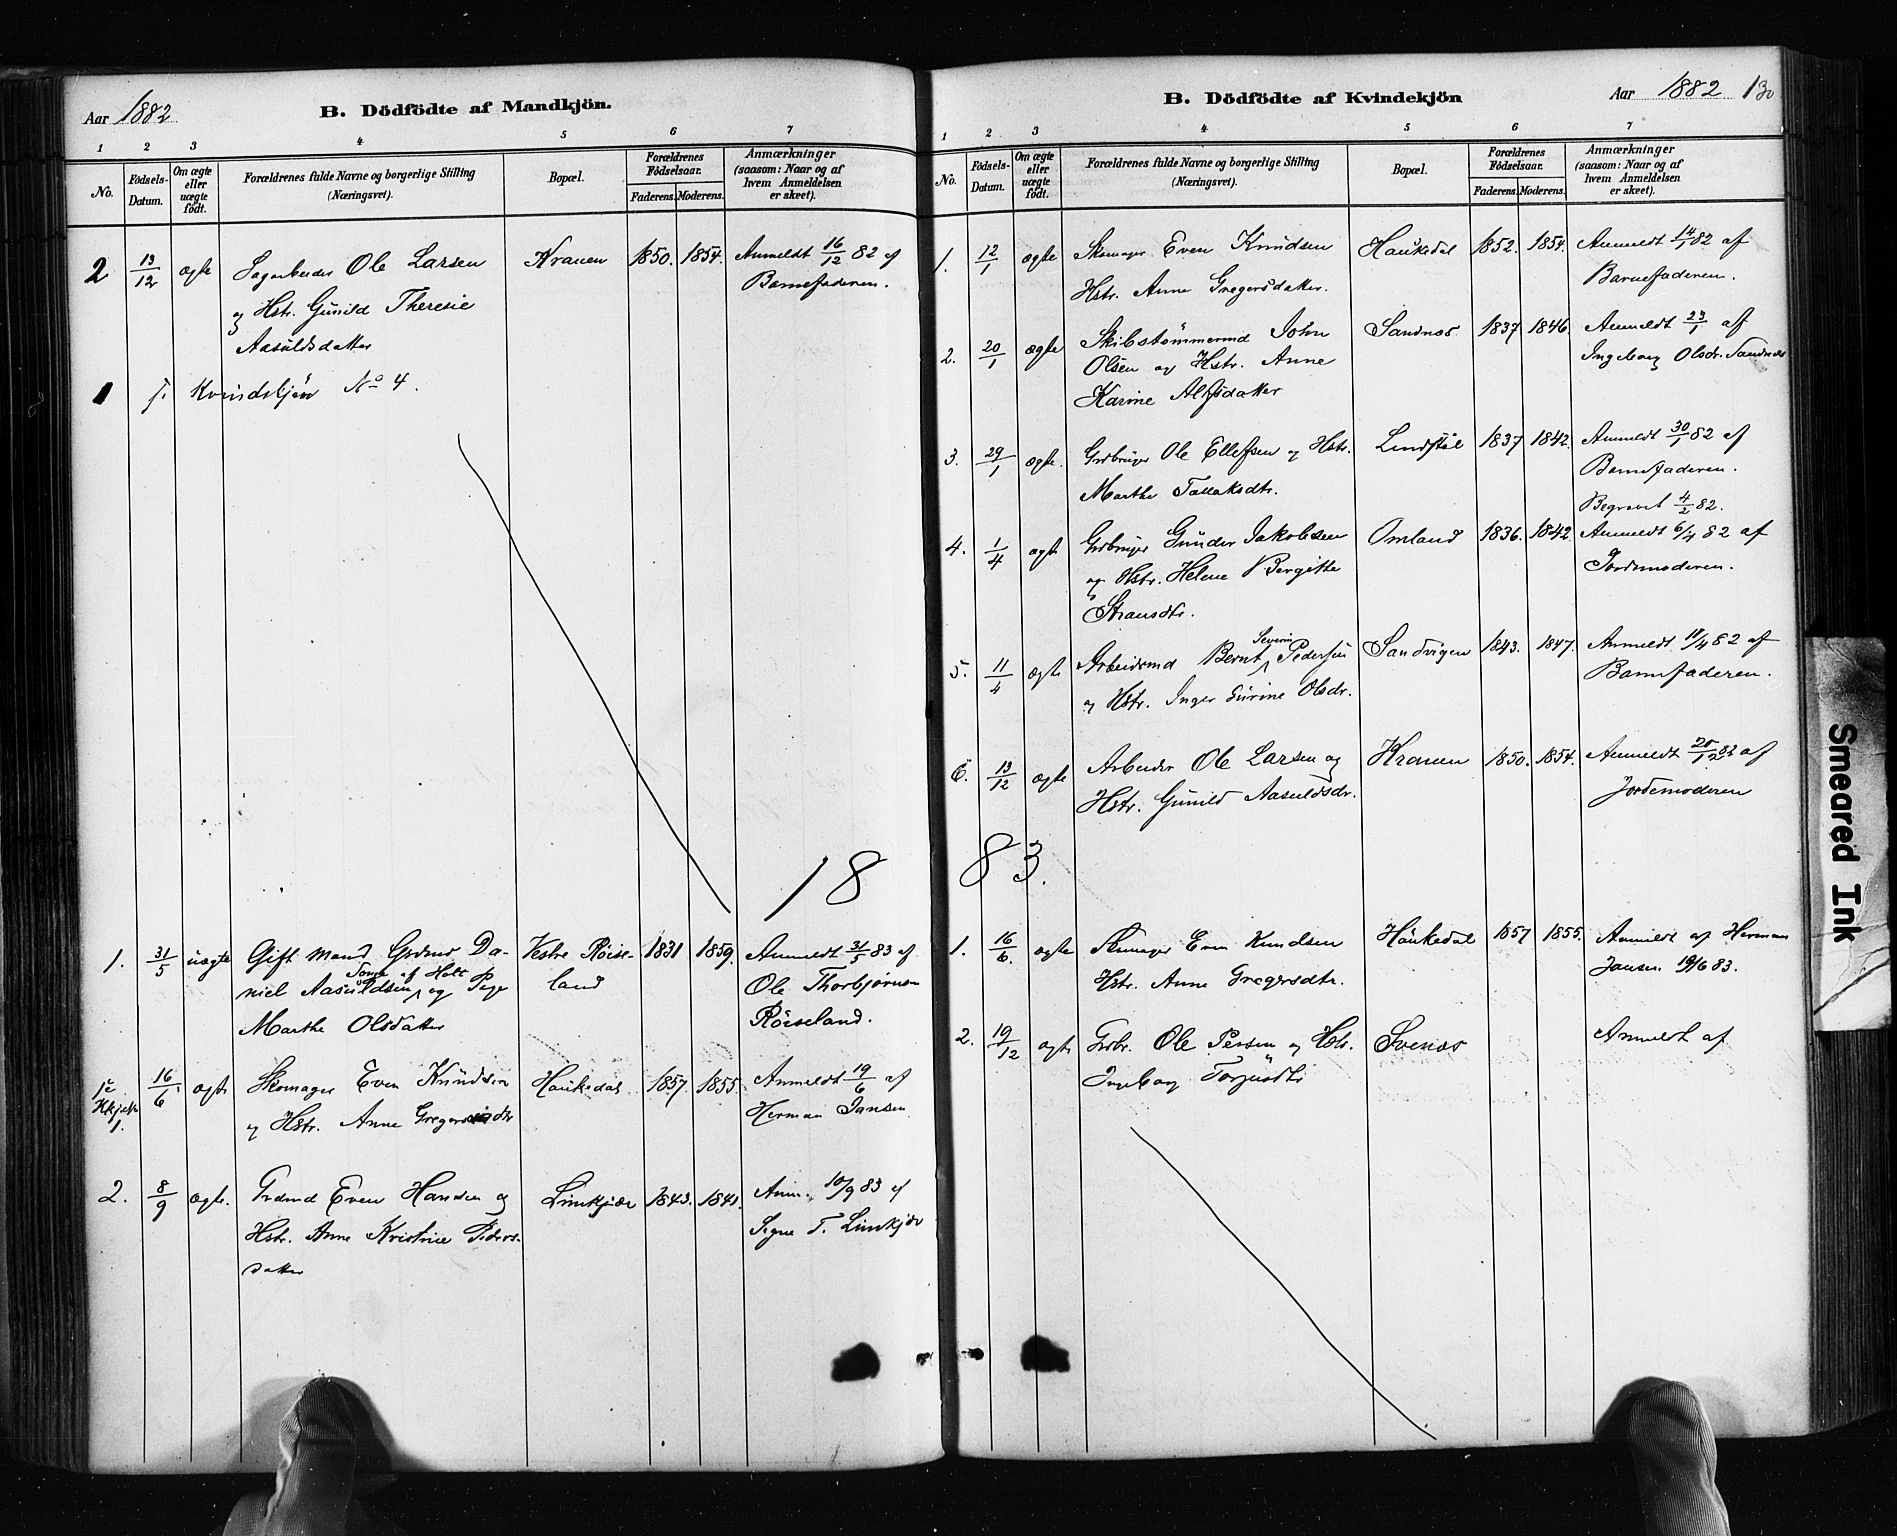 Aar 1882
B. Dödfödte af Mandkjön.
1 2 3 4 5 6 7
No.
Födsels-Datum.
Om ægte eller uægte födt.
Forældrenes fulde Navne og borgerlige Stilling
(Næringsvei).
Bopæl.
Forældrenes Födselsaar.
Faderens. Moderens.
Anmærkninger
(saasom: Naar og af
hvem Anmeldelsen
er skeet).
2 13/12 ægte Sagarbeider Ole Larsen Kranen 1850. 1854. Anmeldt 16/12 82 af
og Hstr. Gunild Theresie Barnefaderen.
Aasuldsdatter
1 f. Kvindekjön No 4.
18
1. 31/5 uægte Gift Mand Grdmd Da- Vestre Röise- 1831 1859. Anmeldt 31/5 83 af
niel Aasuldsen af Holt og Pige land Ole Thorbjørnsen
Marthe Olsdatter Röiseland.
1. 16/6 ægte Skomager Even Knudsen Haukedal 1857. 1855. Anmeldt 19/6 af
og Hstr. Anne Gregersdtr Herman Jansen
2. 8/9 ægte. Grdmd Even Hansen og Limkjær 1843. 1841. Anm. 10/9 83 af
Hstr. Anne Kristine Peders- Signe T. Limkjær
datter
B. Dödfödte af Kvindekjön
Aar 1882 130
1 2 3 4 5 6 7
No.
Födsels-Datum.
Om ægte eller uægte födt.
Forældrenes fulde Navne og borgerlige Stilling
(Næringsvei).
Bopæl.
Forældrenes Födselsaar.
Faderens. Moderens.
Anmærkninger
(saasom: Naar og af
hvem Anmeldelsen
er skeet).
1. 12/1 ægte Skomager Even Knudsen Haukedal 1852. 1854. Anmeldt 14/1 82 af
Hstr. Anne Gregersdatter. Barnefaderen.
2. 20/1 ægte Skibstømmermd John Sandnæs 1837 1846. Anmeldt 23/1 af
Olsen og Hstr. Anne Ingeborg Olsdr. Sandnæs
Karine Alfsdatter
3. 29/1 ægte. Grdbruger Ole Ellefsen og Hstr. Lindstøl 1837 1842. Anmeldt 30/1 82 af
Marthe Tallaksdtr. Barnefaderen.
Begravet 4/2 82.
4. 1/4 ægte Grdbruger Gunder Jakobsen Omland 1836. 1842. Anmeldt 6/4 82 af
og Hstr. Helene Bergitte Jordemoderen.
5. 11/4 ægte Arbeidsmd Bernt Severin Pedersen Sandvigen 1843. 1847. Anmeldt 11/4 82 af
og Hstr. Inger Gurine Olsdr. Barnefaderen.
6. 13/12 ægte Arbeider Ole Larsen og Kranen 1850. 1854. Anmeldt af
Hstr. Gunild Aasuldsdr. Jordemoderen
83.
1. 16/6. ægte Skomager Even Knudsen Haukedal 1857 1855. Anmeldt af Herman
Hstr. Anne Gregersdtr. Jansen 19/6 83.
2. 19/12 ægte Grdbr. Ole Persen og Hstr. Svenæs Anmeldt af
Ingeborg
Smeared Ink